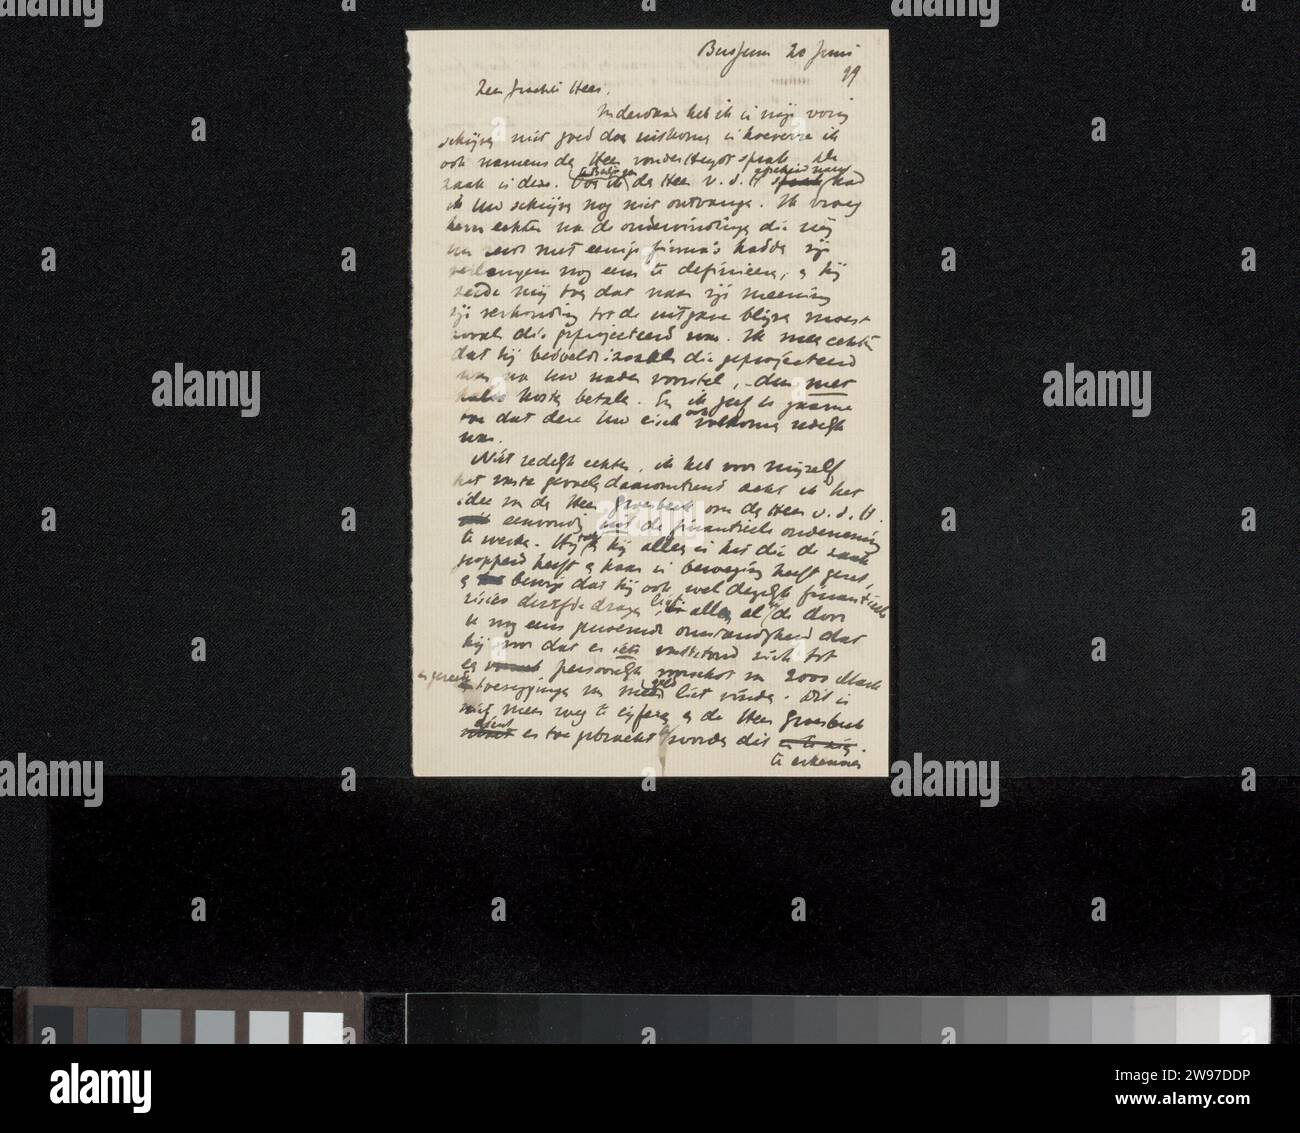 Bussum 20 Juni
99
Zeer geachte Heer,
Inderdaad heb ik in mijn vorig
schrijven niet goed doen uitkomen in hoeverre ik
ook namens den Heer van der Heijst sprak. De
zaak is deze. Toen ik den Heer v. d. H had
ik Uw schrijven nog niet ontvangen. Ik vroeg
hem echter na de ondervinding die wij
nu reeds met eenige firma's hadden zijn
verlangen nog eens te definieeren, en hij
zeide mij toen dat naar zijn meening
zijn verhouding tot de uitgave blijven moest
zooals die geprojecteerd was. Ik meen echter
dat hij bedoelde: zooals die geprojecteerd
was na Uw nader voorstel, dus met
halve kosten betalen. En ik geef U gaarne
toe dat deze Uw eisch ook volkomen redelijk
was.
Niet redelijk echter, ik heb voor mijzelf
het vaste gevoel daaromtrent acht ik het
idee van den Heer Groesbeek om den Heer v. d. H.
eenvoudig uit de financieele onderneming
te werken. Hij toch hij alleen is het die de zaak
geopperd heeft en haar in beweging heeft gezet,
en bewijs dat hij ook wel degelijk financieele
risico's durfde dragen ligt, in alles al de door
U nog eens genoemde omstandigheid dat
hij voor dat er iets vaststond zich tot
een persoonlijk voorschot van 2000 Mark
en toezegging van meer geld liet vinden. Dit is
niet meer weg te cijferen en de Heer Groesbeek
dient er toe gebracht worden dit
te erkennen
alamy
a
alamy
Image ID: 2W97DDP
www.alamy.com